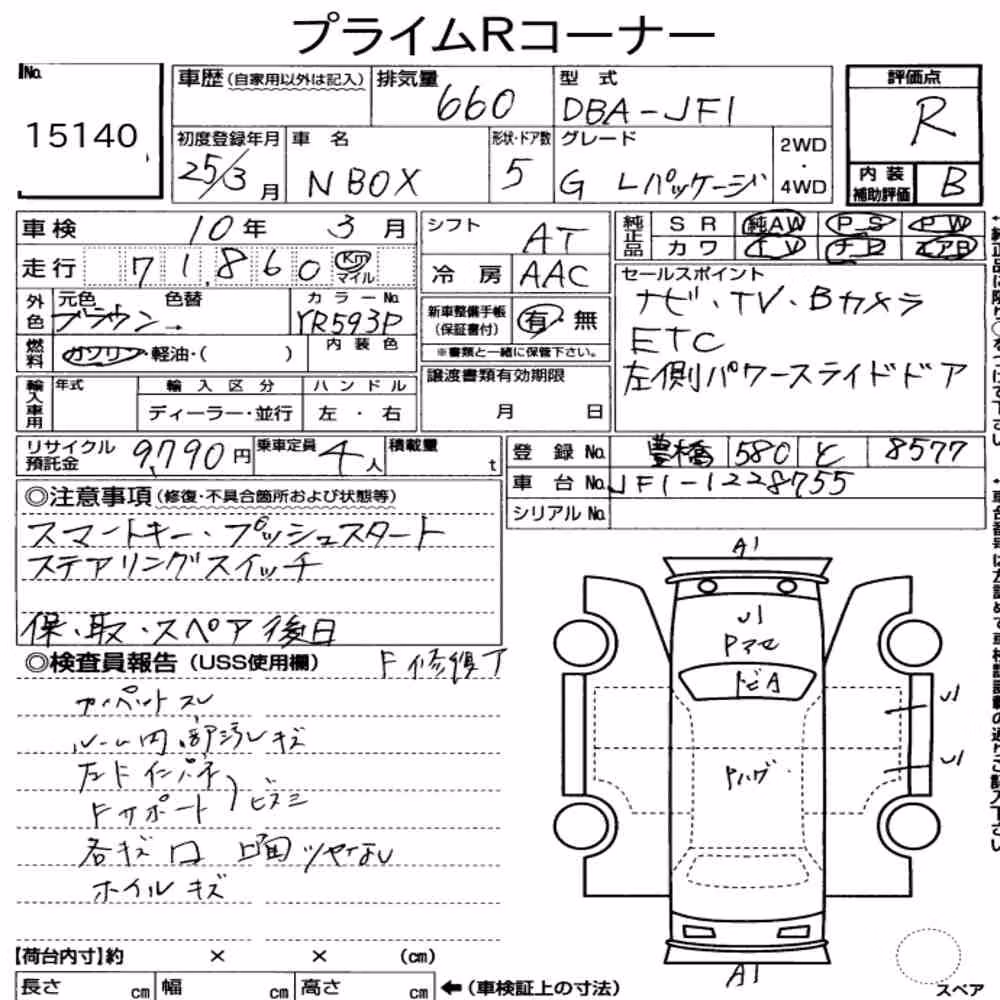 プライムRコーナー
No. 15140
車歴(自家用以外は記入) 排気量 660 型式 DBA-JF1 評価点 R
初度登録年月 25/3月 車名 N BOX 形状・ドア数 5 グレード G Lパッケージ 2WD・4WD 内装補助評価 B
車検 10年 3月 シフト AT 純正品 SR 純AW PS PW
走行 71,860 Km マイル 冷房 AAC カワ TV ナビ エアB
外色 元色 ブラウン 色替 → カラーNo. YR593P 新車整備手帳(保証書付) 有・無
※書類と一緒に保管下さい。
セールスポイント
ナビ・TV・Bカメラ
ETC
左側パワースライドドア
燃料 ガソリン・軽油・( ) 内装色
輸入車用 年式 輸入区分 ディーラー・並行 ハンドル 左・右 譲渡書類有効期限 月 日
リサイクル預託金 9,790円 乗車定員 4人 積載量 t
登録No. 豊橋 580 と 8577
車台No. JF1-1228755
シリアルNo.
◎注意事項(修復・不具合箇所および状態等)
スマートキー・プッシュスタート
ステアリングスイッチ
保・取・スペア後日
◎検査員報告(USS使用欄) F修復了
カーペットスレ
ルーム内部汚レキズ
左Fインパネ
Fサポート ) ヒズミ
各キズ凹 上面ツヤなし
ホイルキズ
A1
U1
Pマモ
トビA
Pハゲ
U1
U1
A1
【荷台内寸】約 × × (cm)
長さ cm 幅 cm 高さ cm ←(車検証上の寸法)
スペア